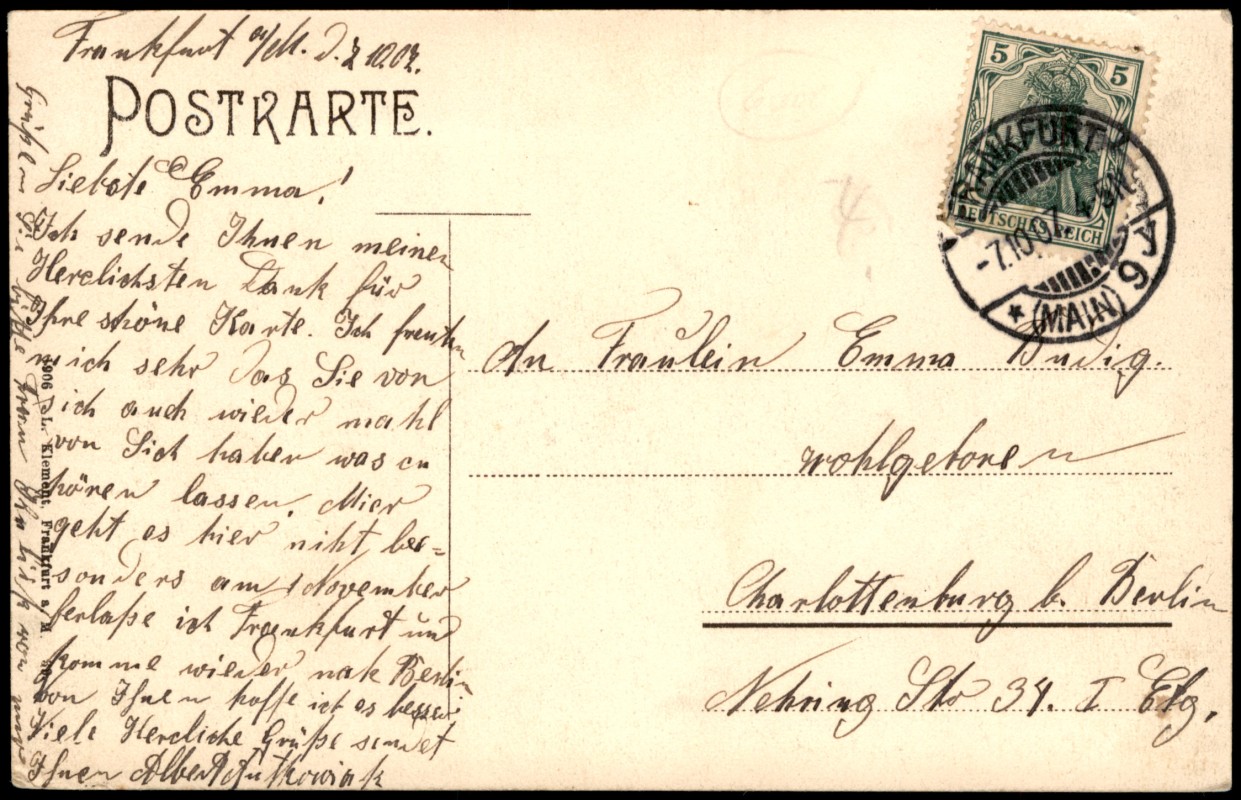 Frankfurt a/M. d. 7.10.07.
POSTKARTE.
Liebste Emma!
Ich sende Ihnen meinen
Herclichsten Dank für
Ihre shöne Karte. Ich freuhe
mich sehr das Sie von
ich auch wieder mahl
von Sich haben was cu
hören lassen. Mier
geht es hier niht be=
sonders am 1 November
ferlaße ich Frankfurt und
komme wieder nak Berlin
von Ihnen hoffe ich es besser
Viele Hercliche Grüße sendet
Ihnen Albert
Grüßen Sie bitte von mir
1906 L. Klement, Frankfurt a/M
5 5
DEUTSCHES REICH
FRANKFURT
-7.10.07. 4-5N.
* (MAIN) 9 y
An Fräulein Emma Budig.
wohlgeboren
Charlottenburg b. Berlin
Nehring Str 34. I Etg.